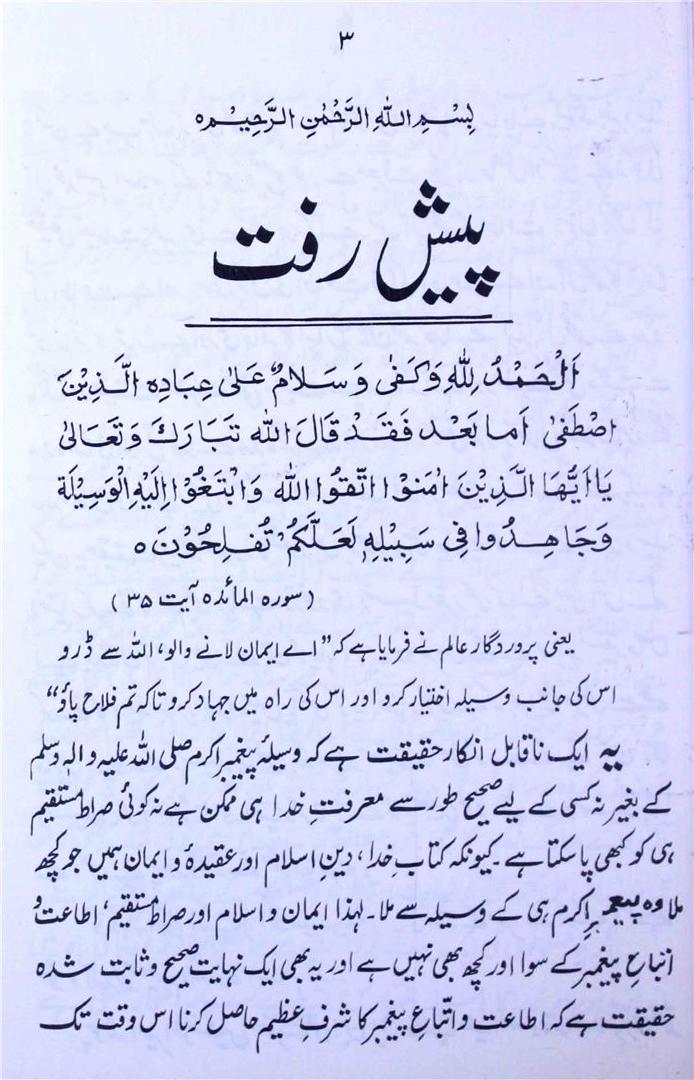 ۳
بِسْمِ اللهِ الرَّحْمٰنِ الرَّحِيْمِ ٥
پیش رفت
اَلْحَمْدُ لِلّٰهِ وَكَفٰى وَسَلَامٌ عَلٰى عِبَادِهِ الَّذِيْنَ
اصْطَفٰى اَما بَعْد فَقَدْ قَالَ اللهُ تَبَارَكَ وَتَعَالٰى
يَا اَيُّهَا الَّذِيْنَ اٰمَنُوْا اتَّقُوا اللهَ وَابْتَغُوْا اِلَيْهِ الْوَسِيْلَةَ
وَجَاهِدُوا فِيْ سَبِيْلِهٖ لَعَلَّكُمْ تُفْلِحُوْنَ ٥
(سورہ المائدہ آیت ۳۵)
یعنی پروردگار عالم نے فرمایا ہے کہ ”اے ایمان لانے والو، اللہ سے ڈرو
اس کی جانب وسیلہ اختیار کرو اور اس کی راہ میں جہاد کرو تاکہ تم فلاح پاؤ“
یہ ایک ناقابل انکار حقیقت ہے کہ وسیلۂ پیغمبر اکرم صلی اللہ علیہ و الہٖ وسلم
کے بغیر نہ کسی کے لیے صحیح طور سے معرفتِ خدا ہی ممکن ہے نہ کوئی صراط مستقیم
ہی کو کبھی پا سکتا ہے۔ کیونکہ کتابِ خدا، دینِ اسلام اور عقیدۂ و ایمان ہمیں جو کچھ
ملا وہ پیغمبرِ اکرم ہی کے وسیلہ سے ملا۔ لہذا ایمان و اسلام اور صراط مستقیم، اطاعت و
اتباعِ پیغمبر کے سوا اور کچھ بھی نہیں ہے اور یہ بھی ایک نہایت صحیح و ثابت شدہ
حقیقت ہے کہ اطاعت و اتّباعِ پیغمبر کا شرفِ عظیم حاصل کرنا اس وقت تک